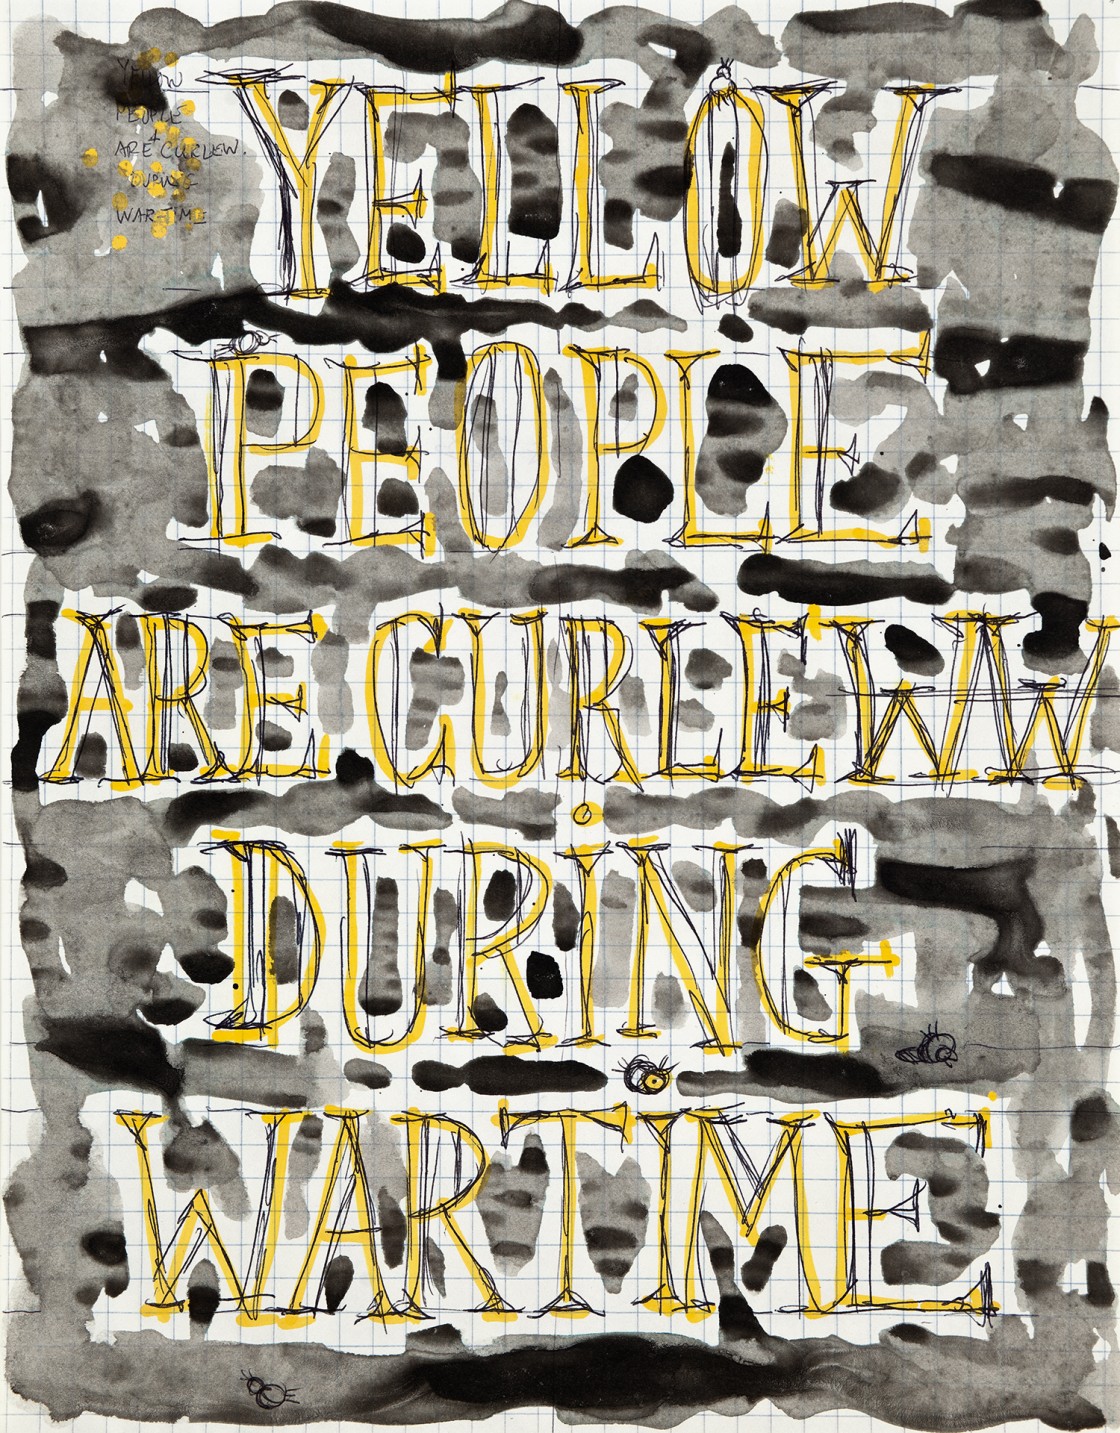 YELLOW
PEOPLE
+
ARE CURLEW.
DURING
WARTIME
YELLOW
PEOPLE
ARE CURLEWW
DURING
WARTIME